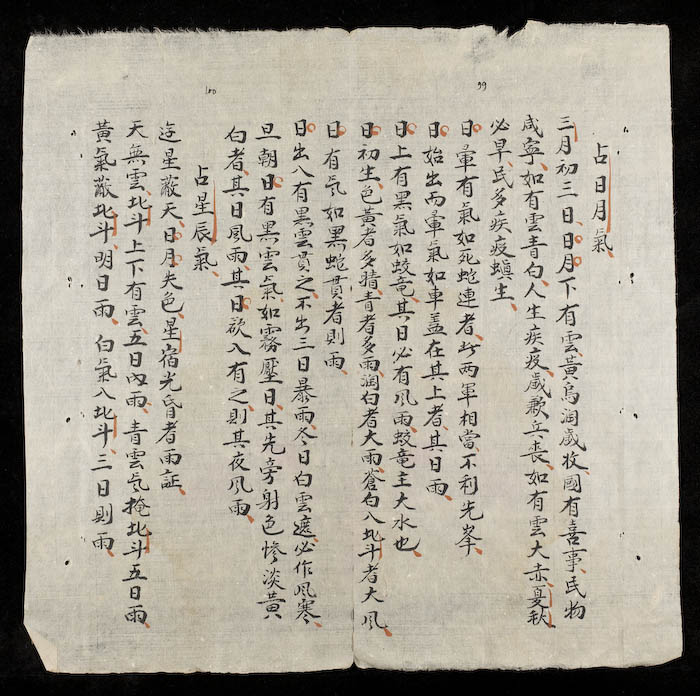 99
占日月氣
三月初三日日月下有雲黃烏潤歲收國有喜事民物
咸寧如有雲青白人生疾疫歲歉兵喪如有雲大赤夏秋
必旱民多疾疫蝗生
日暈有氣如死蛇連者此兩軍相當不利先峯
日始出而暈氣如車盖在其上者其日雨
日上有黑氣如蛟竜其日必有風雨蛟竜主大水也
日初生色黃者多晴青者多雨潤白者大雨蒼白入北斗者大風
日有氣如黑蛇貫者則雨
日出入有黑雲貫之不出三日暴雨冬日白雲遮必作風寒
旦朝日有黑雲氣如霧壓日其先旁射色慘淡黃
白者其日風雨其日欲入有之則其夜風雨
100
占星辰氣
迯星蔽天日月失色星宿光昏者雨証
天無雲北斗上下有雲五日內雨青雲气掩北斗五日雨
黃氣蔽北斗明日雨白氣入北斗三日則雨